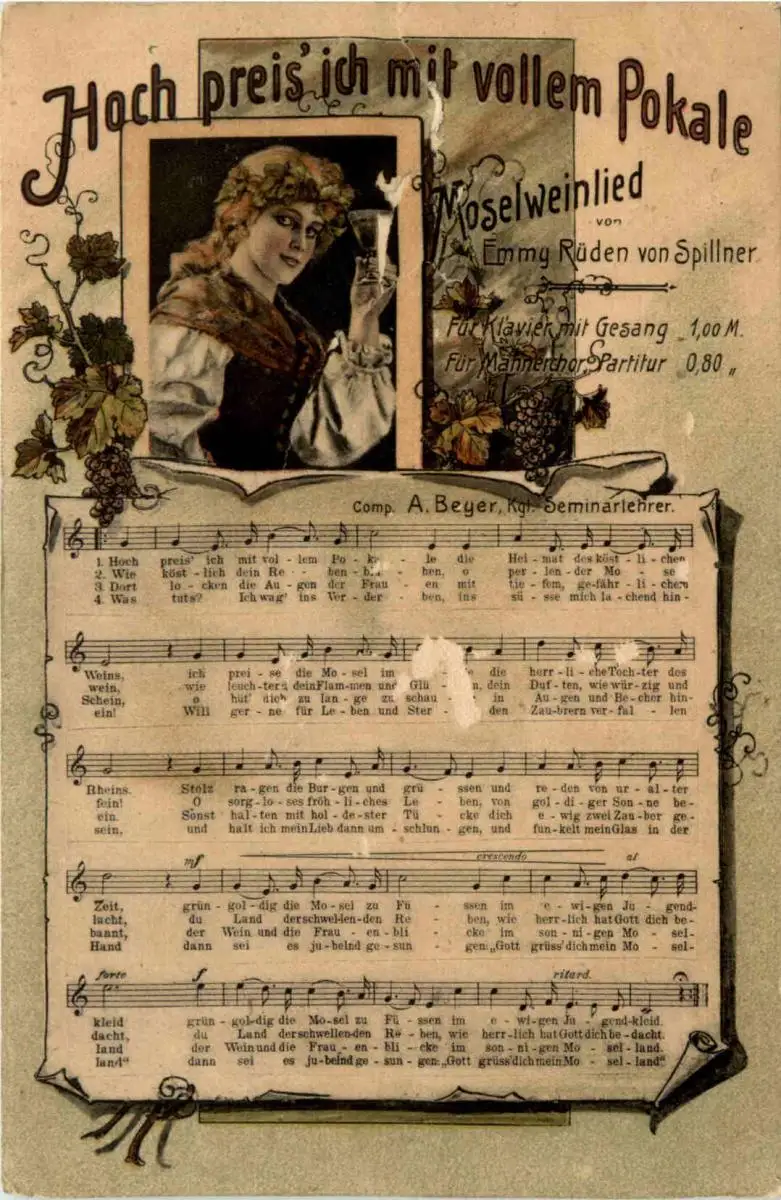 Hoch preis' ich mit vollem Pokale
Moselweinlied
von
Emmy Rüden von Spillner
Für Klavier mit Gesang 1,00 M.
Für Männerchor, Partitur 0,80 "
Comp. A. Beyer, Kgl. Seminarlehrer.
1. Hoch preis' ich mit vol - lem Po - ka - le die Hei - mat des köst - li - chen
2. Wie köst - lich dein Re - ben - ben, o per - len - der Mo - se
3. Dort lo - cken die Au - gen der Frau - en mit tie - fem, ge - fähr - li - chem
4. Was tuts? Ich wag' ins Ver - der - ben, ins sü - sse mich la - chend hin -
Weins, ich prei - se die Mo - sel im die herr - li - che Toch - ter des
wein, wie leuch - tend dein Flam - men und Glü - n, dein Duf - ten, wie wür - zig und
Schein, o hüt' dich zu lan - ge zu schau - in Au - gen und Be - cher hin -
ein! Will ger - ne für Le - ben und Ster - den Zau - brern ver - fal - len
Rheins. Stolz ra - gen die Bur - gen und grü - ssen und re - den von ur - al - ter
fein! O sorg - lo - ses fröh - li - ches Le - ben, von gol - di - ger Son - ne be -
ein. Sonst hal - ten mit hol - de - ster Tü - cke dich e - wig zwei Zau - ber ge -
sein, und halt ich mein Lieb dann um - schlun - gen, und fun - kelt mein Glas in der
mf crescendo al
Zeit, grün - gol - dig die Mo - sel zu Fü - ssen im e - wi - gen Ju - gend -
lacht, du Land der schwel - len - den Re - ben, wie herr - lich hat Gott dich be -
bannt, der Wein und die Frau - en - bli - cke im son - ni - gen Mo - sel -
Hand dann sei es ju - belnd ge - sun - gen: „Gott grüss' dich mein Mo - sel -
forte f ritard.
kleid grün - gol - dig die Mo - sel zu Fü - ssen im e - wi - gen Ju - gend - kleid.
dacht, du Land der schwellenden Re - ben, wie herr - lich hat Gott dich be - dacht.
land der Wein und die Frau - en - bli - cke im son - ni - gen Mo - sel - land.
land" dann sei es ju - belnd ge - sun - gen: „Gott grüss' dich mein Mo - sel - land"